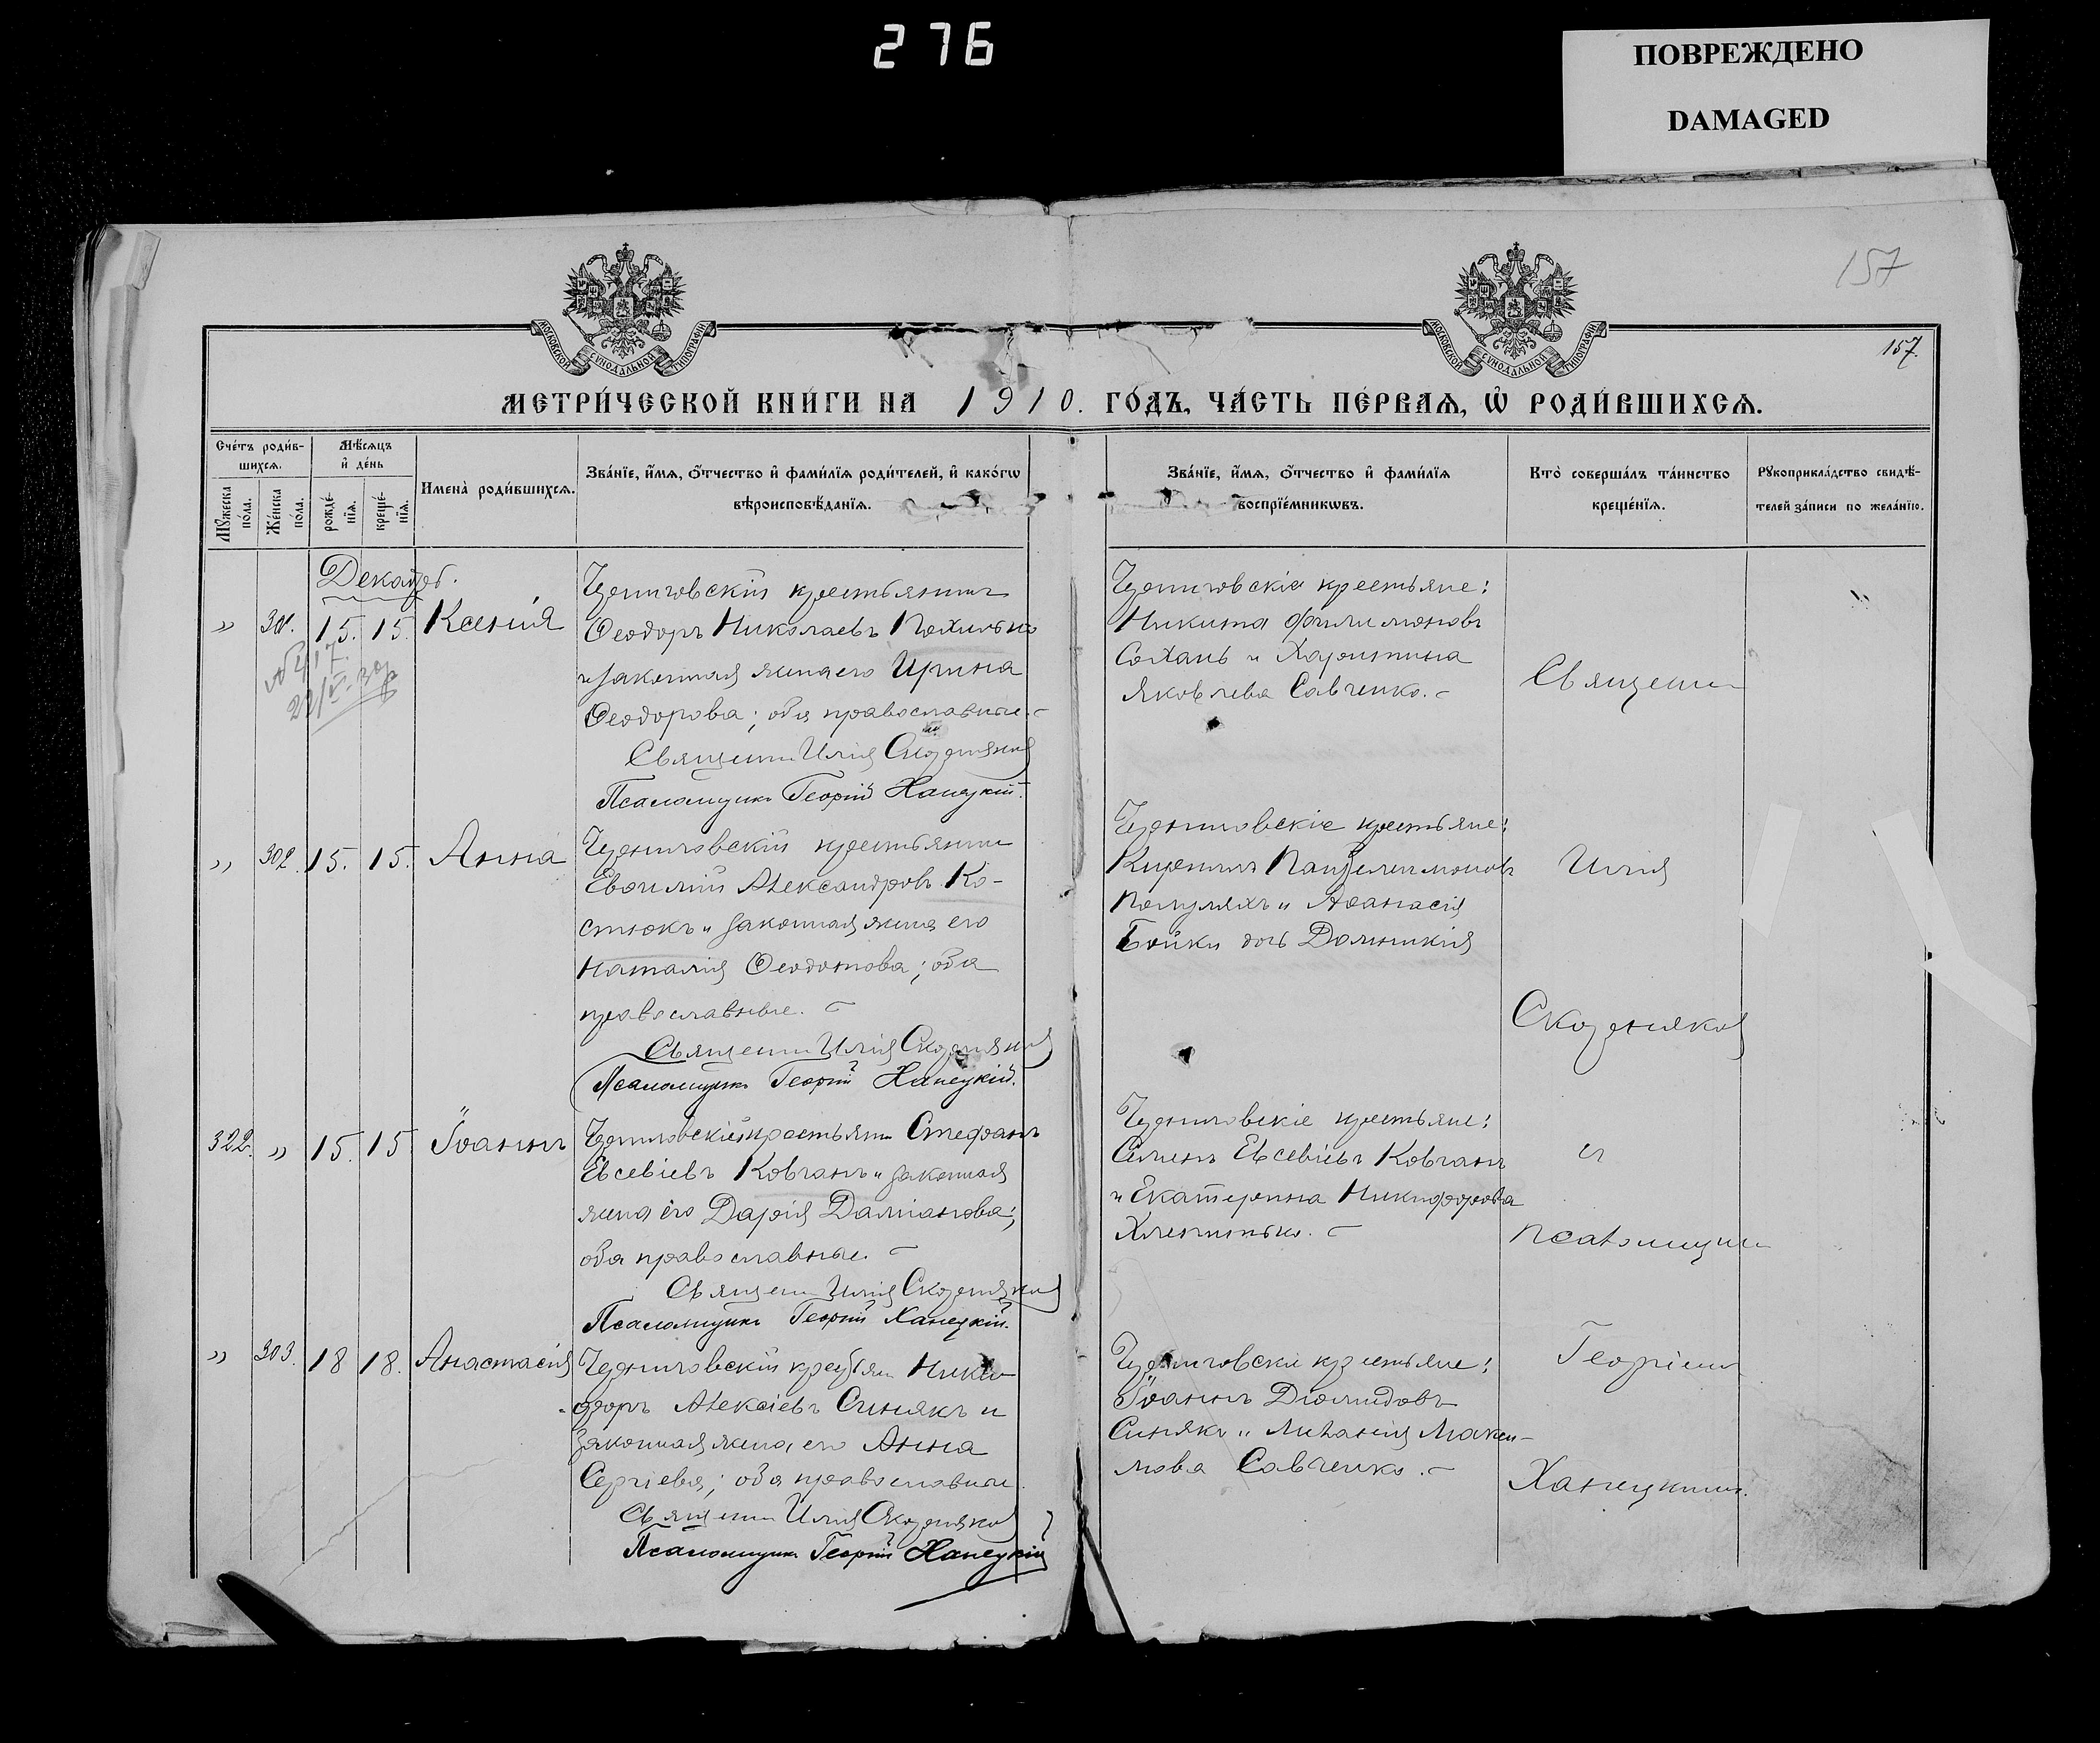 276
ПОВРЕЖДЕНО
DAMAGED
157
157.
МОСКОВСКОЙ СѴНОДАЛЬНОЙ ТИПОГРАФІИ
МОСКОВСКОЙ СѴНОДАЛЬНОЙ ТИПОГРАФІИ
МЕТРИ́ЧЕСКОЙ КНИ́ГИ НА 1910. ГО́ДЪ, ЧА́СТЬ ПЕ́РВАѦ, Ѡ҆ РОДИ́ВШИХСѦ.
Сче́тъ роди́в-
шихсѧ.
Мꙋ́жеска по́ла.
Же́нска по́ла.
Мѣ́сѧцъ
и҆ де́нь
рожде́-
нїѧ.
креще́-
нїѧ.
Имена̀ роди́вшихсѧ.
Зва́нїе, и҆́мѧ, ѻ҆́тчество и҆ фами́лїѧ роди́телей, и҆ како́гѡ
вѣроисповѣ́данїѧ.
Зва́нїе, и҆́мѧ, ѻ҆́тчество и҆ фами́лїѧ
воспрїе́мникѡвъ.
Кто̀ соверша́лъ та́инство
креще́нїѧ.
Рꙋкоприкла́дство свидѣ́-
телей за́писи по жела́нїю.
Декабрь.
" 301. 15. 15. Ксенія
Черниговскій крестьянинъ
Ѳеодоръ Николаевъ Похилько
и законная жена его Ирина
Ѳеодорова; оба православные.
Священн Илія Скорняков
Псаломщикъ Георгій Ханецкій.
Черниговскіе крестьяне:
Никита Филимоновъ
Сохань и Харитина
Яковлева Савченко.
Священн
" 302. 15. 15. Анна
Черниговскій крестьянин
Евфимій Александровъ Ко-
стюкъ и законная жена его
Наталія Ѳеодотова; оба
православные.
Священн Илія Скорняков
Псаломщикъ Георгій Ханецкій.
Черниговскіе крестьяне:
Кириллъ Пантелеимоновъ
и Аѳанасія
Бойки дочь
Илія
Скорняков
322. " 15. 15 Іоаннъ
Черниговскій крестьян Стефанъ
Евсевіевъ Ковганъ и законная
жена его Дарія Даміанова;
оба православные.
Священн Илія Скорняков
Псаломщикъ Георгій Ханецкій.
Черниговскіе крестьяне:
Симеонъ Евсевіевъ Ковганъ
и Екатерина Никифорова
с
псаломщик
" 303. 18 18. Анастасія
Черниговскій крестьян Ники-
форъ Алексіевъ Синякъ и
законная жена его Анна
Сергіева; оба православные.
Священн Илія Скорняков
Псаломщикъ Георгій Ханецкій
Черниговскіе крестьяне:
Іоаннъ Діомидовъ
Синякъ и Меланія Макси-
мова Савченко.
Георгіем
Ханецкимъ.